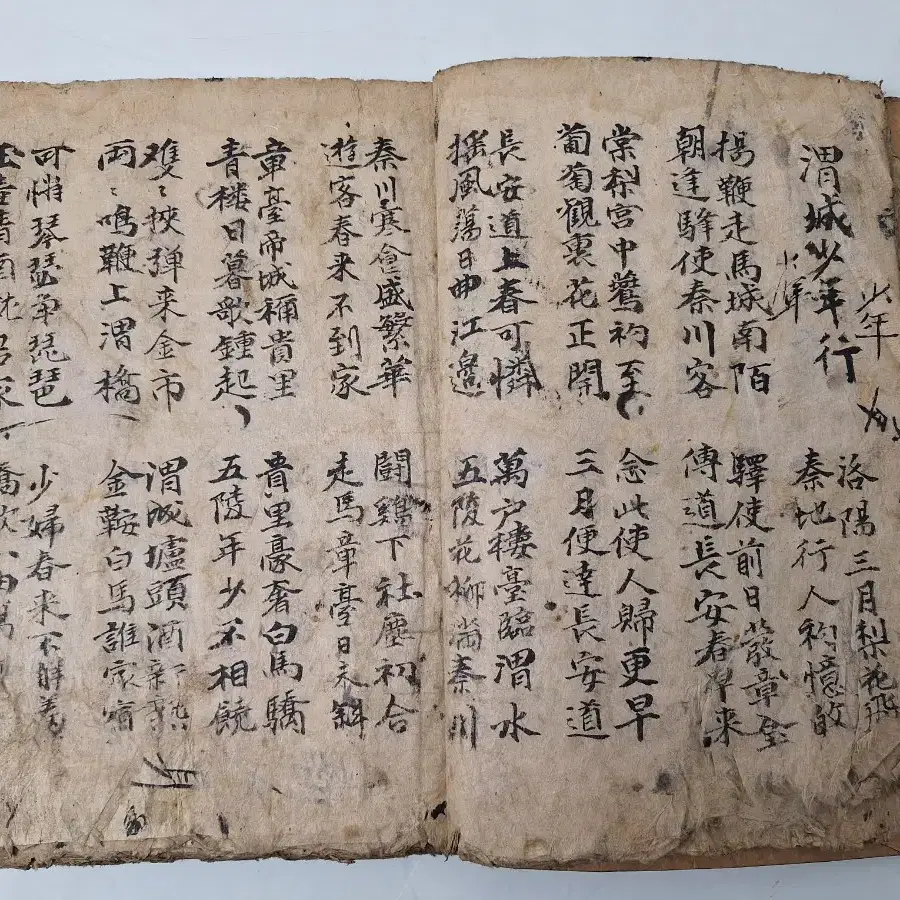 渭城少年行
少年
少年
洛陽三月梨花飛
秦地行人初憶的
揚鞭走馬城南陌
朝逢驛使秦川客
驛使前日發章全
傳道長安春早来
棠梨宮中鷰初至
葡萄觀裏花正開
念此使人歸更早
三月便達長安道
長安道上春可憐
搖風蕩日曲江邉
萬户樓臺臨渭水
五陵花柳滿秦川
秦川寒食盛繁華
遊客春来不到家
鬪鷄下杜塵初合
走馬章臺日夫斜
章臺帝城稱貴里
青樓日暮歌鍾起
貴里豪奢白馬驕
五陵年少不相饒
雙〻挾弾来金市
兩〻鳴鞭上渭橋
渭城壚頭酒新熟
金鞍白馬誰家宿
可憐琴瑟箏琵琶
玉壺清酒就君家
少婦春来不解羞